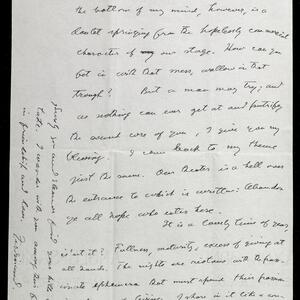 the bottom of my mind, however, is a
doubt springing from the hopelessly commercial
character of our stage. How can you
get in with that mess, wallow in that
trough? But a man may try; and
as nothing can ever get at and putrify
the second core of you, I give you my
blessing. I come back to my theme
just the same. Our theater is a hell over
the entrance to which is written: Abandon
ye all hope who enters here.
It is a lovely time of year,
isn't it? Fullness, maturity, excess of giving at
all hands. The nights are riotous with the
ephemera that must spend their
I share in it like a
Surely you and Eleanor find your hills
I wander with you among them
in friendship and love,